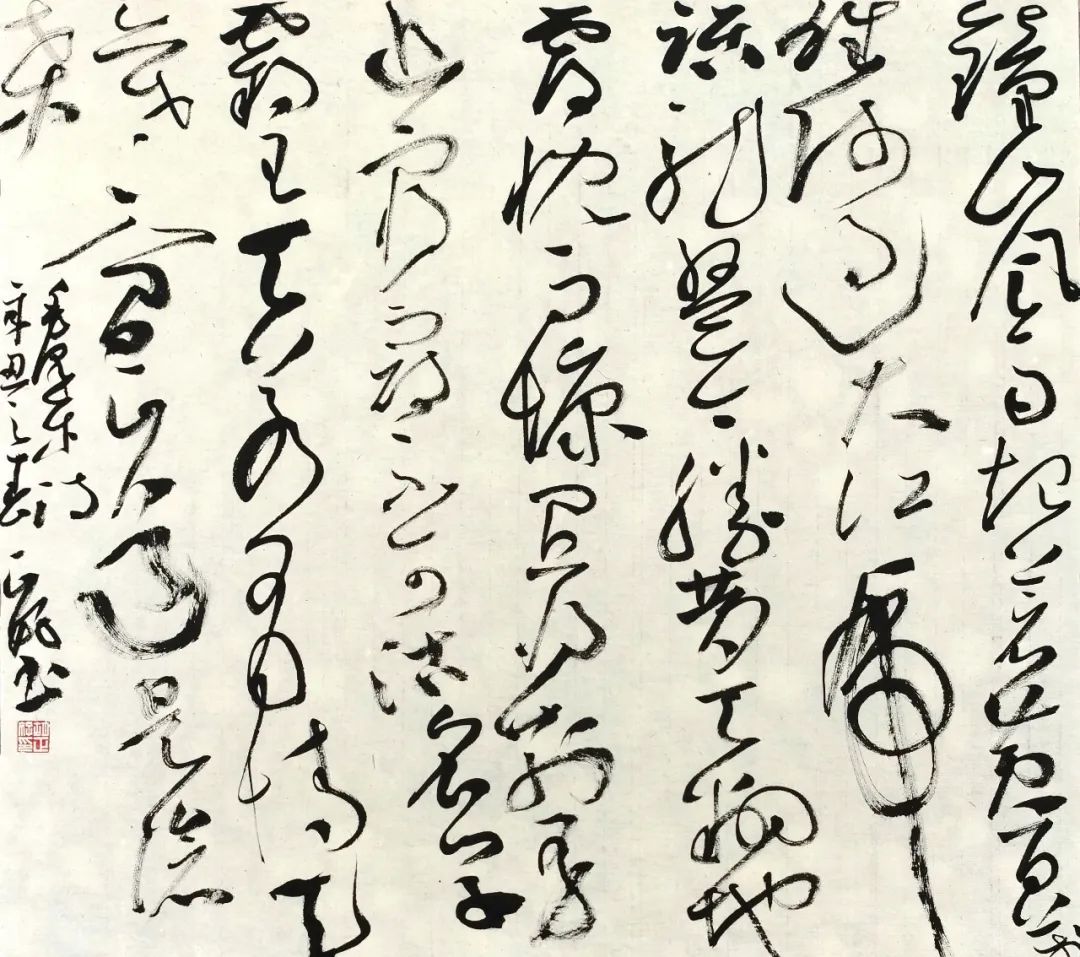 鐘山風雨起蒼黄百萬
雄師過大江虎
踞龍盤今勝昔天翻地
覆慨而慷宜将剩勇
追窮寇不可沽名學
霸王天若有情天
亦老人間正道是滄
桑
毛澤東诗
辛丑之春
书